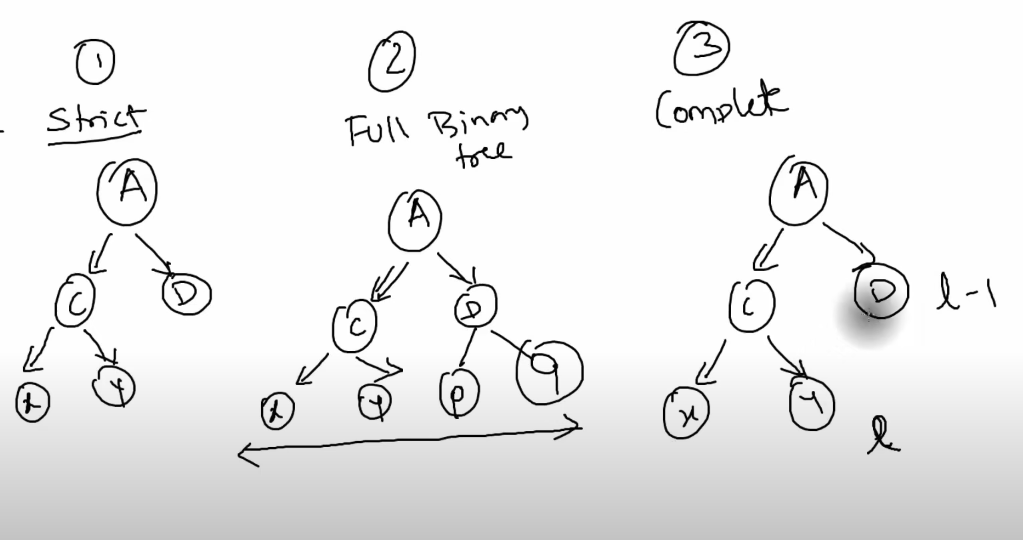 1
Strict
A
C
D
x
y
2
Full Binary
tree
A
C
D
x
y
p
q
3
Complete
A
C
D
l-1
x
y
l